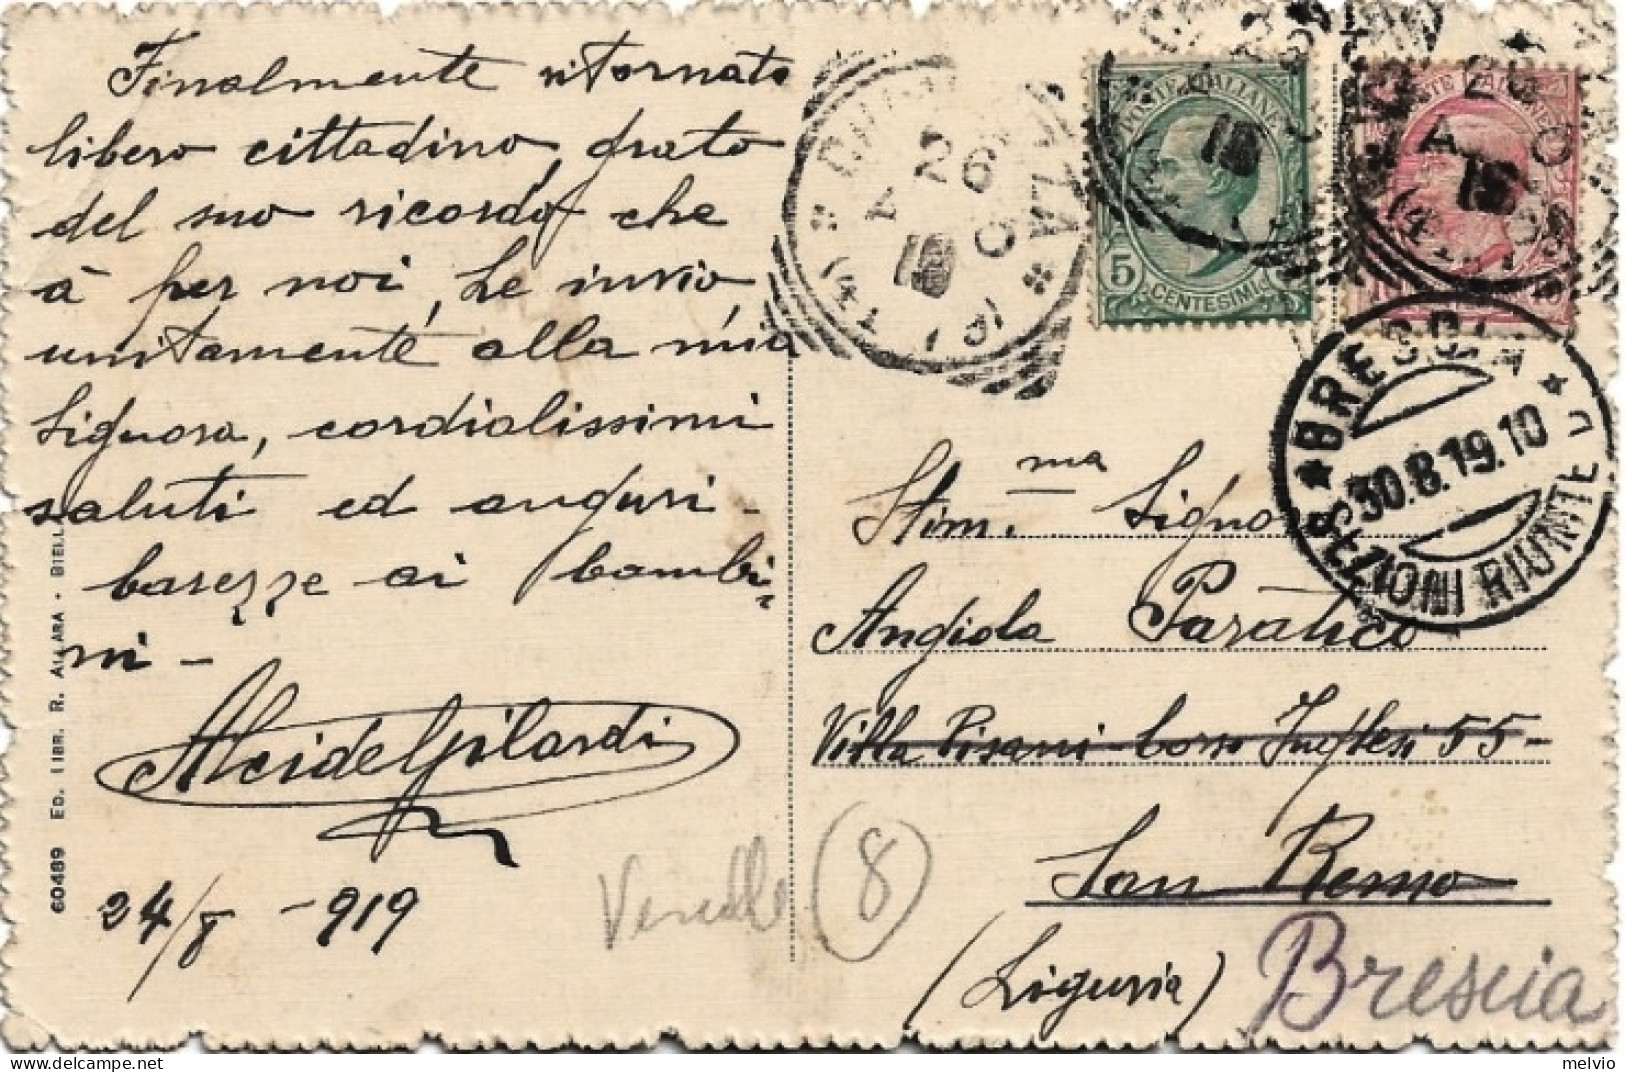 Finalmente ritornato
libero cittadino, grato
del suo ricordo che
à per noi, Le invio,
unitamente alla mia
Signora, cordialissimi
saluti ed auguri -
carezze ai bambi-
ni -
Alcide Gilardi
24/8 - 919
60489 ED. LIBR. R. ALLARA - BIELLA
POSTE ITALIANE
5
CENTESIMI
26
BRESCIA
30.8.19.10
SEZIONI RIUNITE
Stim.ma Signora
Angiola Paratico
Villa Pisani - Corso Inglesi 55 -
San Remo
(Liguria)
Brescia
8
melvio